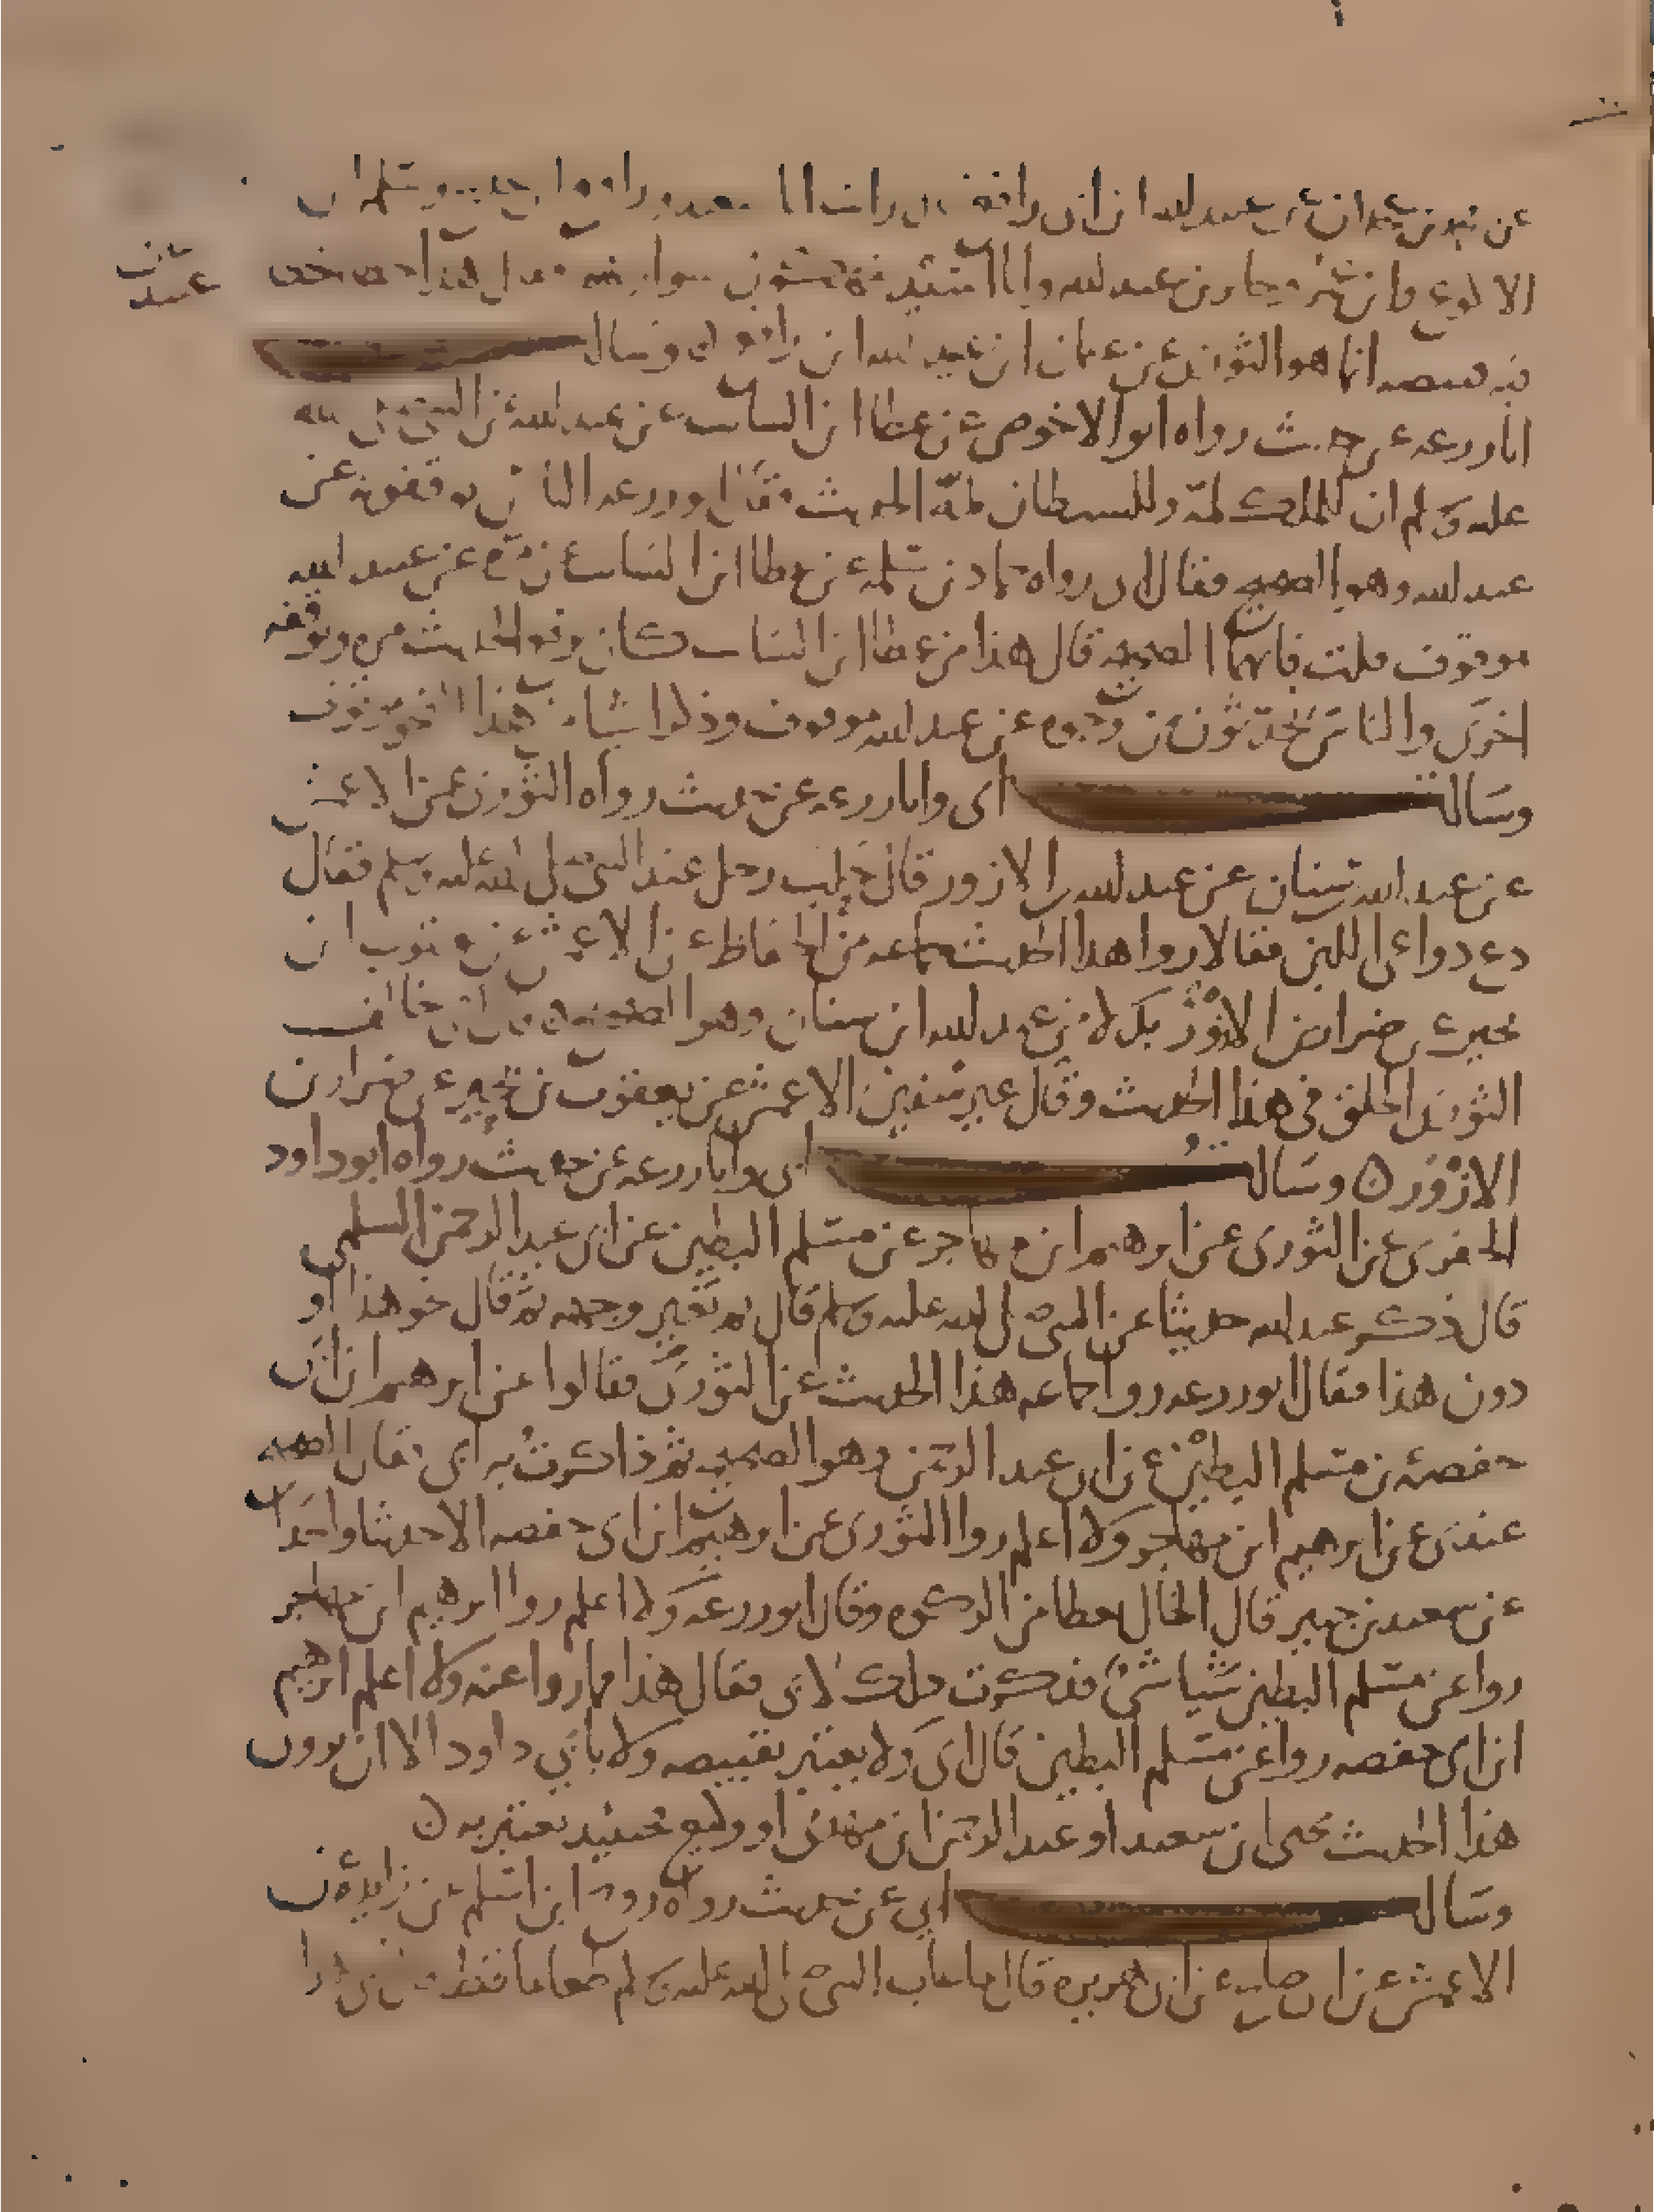 الاكوع وابن عمر وجابر بن عبد الله وابا اسيد
فيه سعيد انما هو الثوري عن عثمان ابن عبيد الله ابن رافع ن وسالت
ابا زرعه عن حديث رواه ابو الاحوص عن عطا ابن السائب عن عبد الله عن النبي صلى الله
عليه وسلم ان للملك لمة وللشيطان لمة الحديث فقال ابو زرعه الناس يوقفونه عن
عبد الله وهو الصحيح فقال ابي رواه حماد بن سلمه عن عطا ابن السائب عن مرة عن عبد الله
موقوف قلت فايهما الصحيح قال هذا من عطا ابن السائب كان يرفع الحديث مره ويوقفه
اخرى والناس يحدثون من وجوه عن عبد الله موقوف
وسالت ابي وابا زرعه عن حديث رواه الثوري عن الاعمش
عن عبد الله بن سنان عن عبد الله بن الازور قال حلب رجل عند النبي صلى الله عليه وسلم فقال
دع دواعي اللبن فقالا روا هذا الحديث جماعه من الحفاظ عن الاعمش عن يعقوب ابن
بحير عن ضرار بن الازور بدل عن عبد الله ابن سنان وهو الصحيح خالف
الثوري الخلق في هذا الحديث وقال غير سفين الاعمش عن يعقوب بن بحير عن ضرار بن
الازور ن وسالت ابي وابا زرعه عن حديث رواه ابو داود
الحفري عن الثوري عن ابرهيم ابن مهاجر عن مسلم البطين عن ابي عبد الرحمن السلمي
قال ذكر عبد الله حديثا عن النبي صلى الله عليه وسلم قال ثم تغير وجهه ثم قال نحو هذا او
دون هذا فقال ابو زرعه روا جماعه هذا الحديث عن الثوري فقالوا عن ابرهيم ابن ابي
حفصه عن مسلم البطين عن ابي عبد الرحمن وهو الصحيح ثم ذاكرت به ابي فقال الصحيح
عندي عن ابرهيم ابن مهاجر ولا اعلم روا الثوري عن ابرهيم ابن ابي حفصه الا حديثا واحدا
عن سعيد بن جبير قال الخال يعطا من الزكوه وقال ابو زرعه ولا اعلم روا ابرهيم ابن مهاجر
روا عن مسلم البطين شيا شي فذكرت ذلك لابي فقال هذا مما روا عنه ولا اعلم ابرهيم
ابن ابي حفصه روا عن مسلم البطين قال ابي ولا يعتبر بقبيصه ولا بابي داود الا ان يروون
هذا الحديث يحيى ابن سعيد او عبد الرحمن ابن مهدي او وكيع فحينئذ يعتبر به ن
وسالت ابي عن حديث رواه روح ابن اسلم عن زايده عن
الاعمش عن ابي صالح عن ابي هريره قال ما عاب النبي صلى الله عليه وسلم طعاما قط